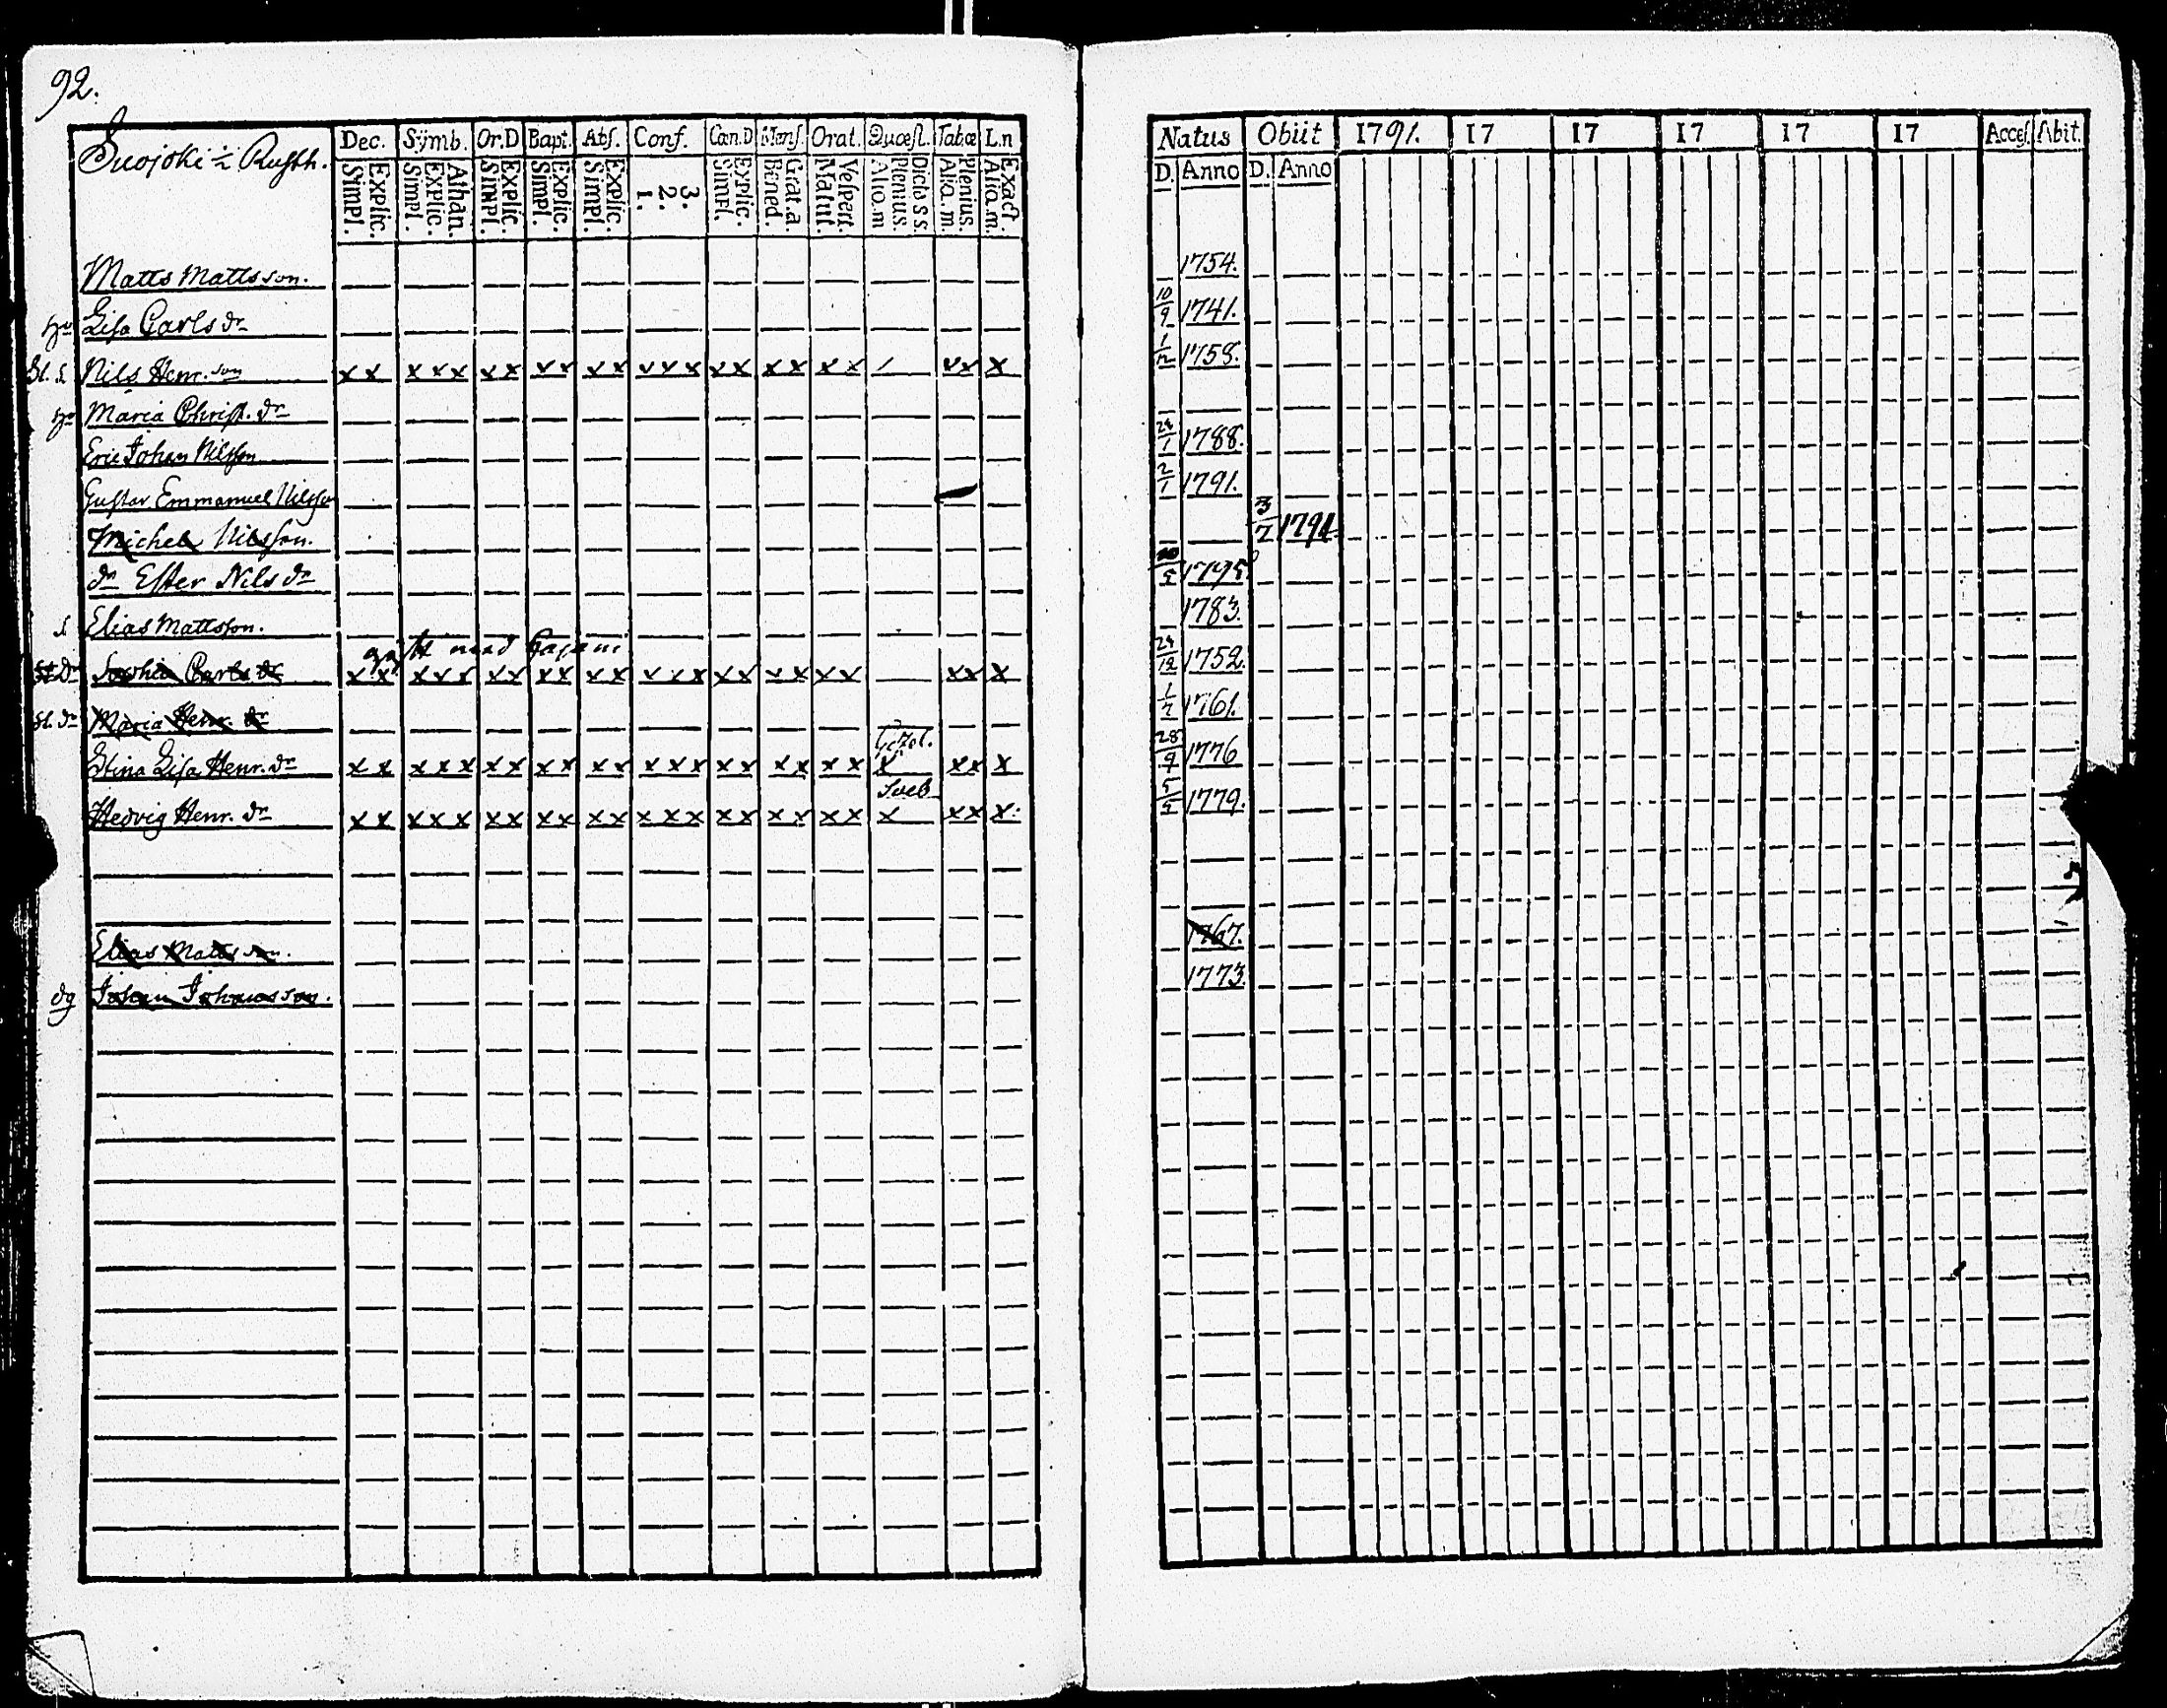 92.
Suojoki ½ Rusth.
Dec. Symb. Or.D Bapt. Abſ. Conf. Can.D Menſ. Orat. Quæſt. Tabœ L.n
Simpl. Explic. Simpl. Explic. Athan. Simpl. Explic. Simpl. Explic. Simpl. Explic. 1. 2. 3. Simpl. Explic. Bened. Grat.a. Matut. Veſpert. Aliq.m Plenius. Dicta S S. Aliq.m. Plenius. Aliq.m. Exact.
Natus Obiit 1791. 17 17 17 17 17 Acceſ. Abit.
D. Anno D. Anno
Matts Mattsson. 1754.
Lisa Carls dr 10/9 1741.
Nils Henr. son x x x x x x x x x x x x x x x x x x x x x x x 1758.
Maria Christ. dr
Eric Johan Nilsson 1788.
Gustav Emmanuel Nilsson 2/1 1791.
Michel Nilsson. 1791
dr Ester Nils dr 1795
Elias Mattsson. 1783.
gift med
dr Sophia Carls dr x x x x x x x x x x x x x x x x x x x x x x 1752.
Maria Henr. dr 1761.
Stina Lisa Henr. dr x x x x x x x x x x x x x x x x x x x x x x x 28/9 1776
Sveb
Hedvig Henr. dr x x x x x x x x x x x x x x x x x x x x x x x 5/5 1779.
Elias Matts son. 1767.
dg Johan Johansson. 1773.